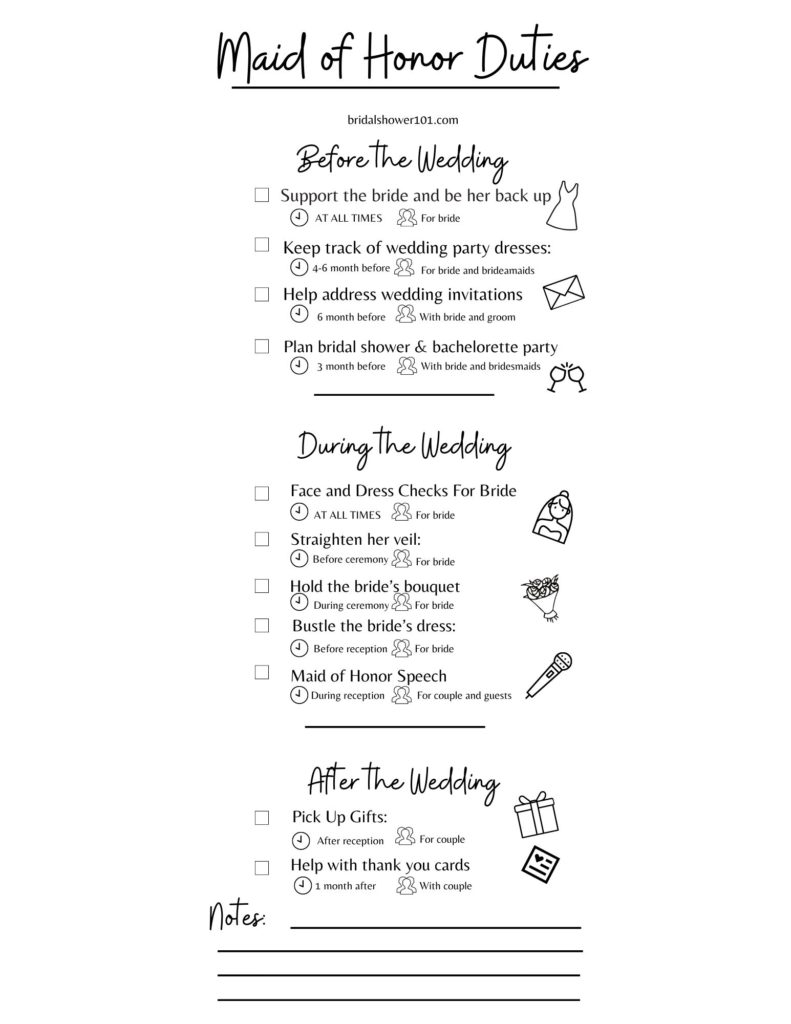 Maid of Honor Duties
bridalshower101.com
Before The Wedding
Support the bride and be her back up
AT ALL TIMES For bride
Keep track of wedding party dresses:
4-6 month before For bride and brideamaids
Help address wedding invitations
6 month before With bride and groom
Plan bridal shower & bachelorette party
3 month before With bride and bridesmaids
During The Wedding
Face and Dress Checks For Bride
AT ALL TIMES For bride
Straighten her veil:
Before ceremony For bride
Hold the bride's bouquet
During ceremony For bride
Bustle the bride's dress:
Before reception For bride
Maid of Honor Speech
During reception For couple and guests
After the Wedding
Pick Up Gifts:
After reception For couple
Help with thank you cards
1 month after With couple
Notes: